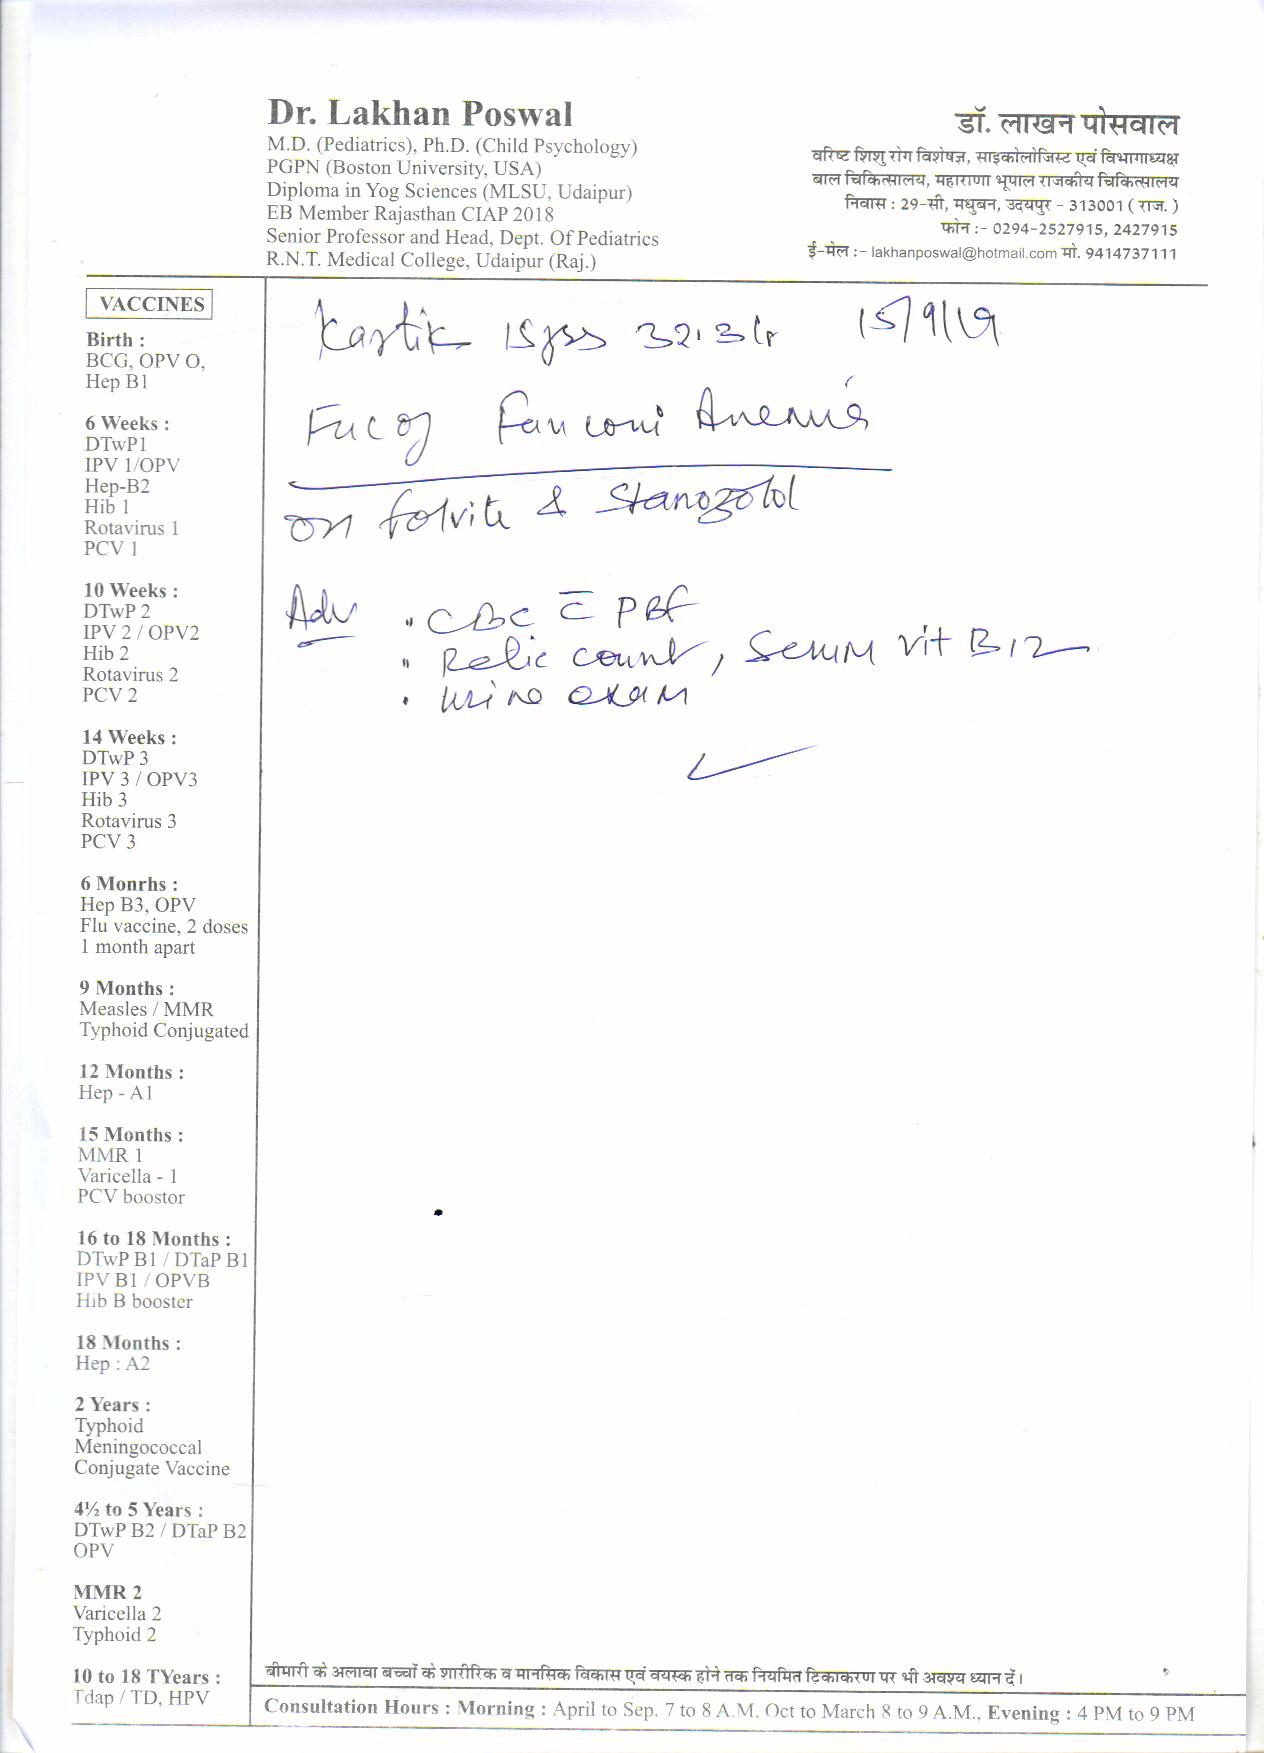 Dr. Lakhan Poswal
M.D. (Pediatrics), Ph.D. (Child Psychology)
PGPN (Boston University, USA)
Diploma in Yog Sciences (MLSU, Udaipur)
EB Member Rajasthan CIAP 2018
Senior Professor and Head, Dept. Of Pediatrics
R.N.T. Medical College, Udaipur (Raj.)
डॉ. लाखन पोसवाल
वरिष्ट शिशु रोग विशेषज्ञ, साइकोलोजिस्ट एवं विभागाध्यक्ष
बाल चिकित्सालय, महाराणा भूपाल राजकीय चिकित्सालय
निवास : 29-सी, मधुबन, उदयपुर - 313001 ( राज. )
फोन :- 0294-2527915, 2427915
ई-मेल :- lakhanposwal@hotmail.com मो. 9414737111
VACCINES
Birth :
BCG, OPV O,
Hep B1
6 Weeks :
DTwP1
IPV 1/OPV
Hep-B2
Hib 1
Rotavirus 1
PCV 1
10 Weeks :
DTwP 2
IPV 2 / OPV2
Hib 2
Rotavirus 2
PCV 2
14 Weeks :
DTwP 3
IPV 3 / OPV3
Hib 3
Rotavirus 3
PCV 3
6 Monrhs :
Hep B3, OPV
Flu vaccine, 2 doses
1 month apart
9 Months :
Measles / MMR
Typhoid Conjugated
12 Months :
Hep - A1
15 Months :
MMR 1
Varicella - 1
PCV boostor
16 to 18 Months :
DTwP B1 / DTaP B1
IPV B1 / OPVB
Hib B booster
18 Months :
Hep : A2
2 Years :
Typhoid
Meningococcal
Conjugate Vaccine
4½ to 5 Years :
DTwP B2 / DTaP B2
OPV
MMR 2
Varicella 2
Typhoid 2
10 to 18 TYears :
Tdap / TD, HPV
Kartik 15yrs 32.3 15/9/19
Fuc of Fanconi Anemia
on folvite & Stanozolol
Adv • CBC c̄ PBF
• Retic count, Serum vit B12
• urine exam
बीमारी के अलावा बच्चों के शारीरिक व मानसिक विकास एवं वयस्क होने तक नियमित टिकाकरण पर भी अवश्य ध्यान दें।
Consultation Hours : Morning : April to Sep. 7 to 8 A.M. Oct to March 8 to 9 A.M., Evening : 4 PM to 9 PM